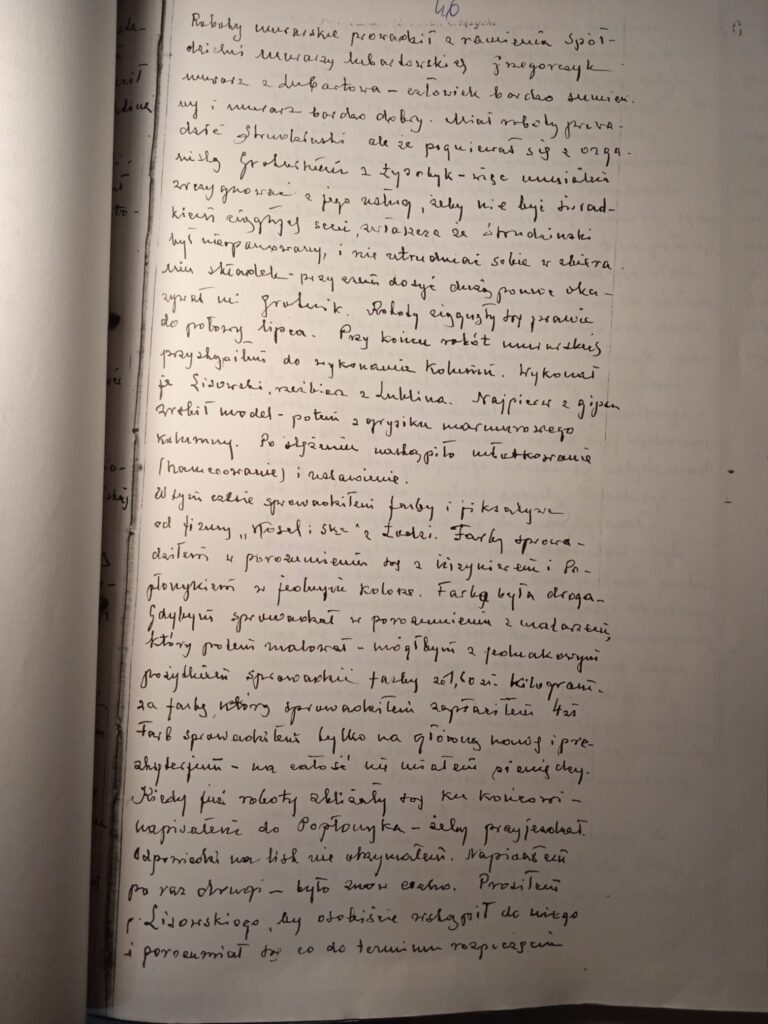 46
Roboty murarskie prowadził z ramienia Spół-
dzielni Murarzy lubartowskiej Grzegorczyk
murarz z Lubartowa – człowiek bardzo sumien.
ny i murarz bardzo dobry. Miał roboty prowa-
dzić Strudziński ale że pogniewał się z orga-
nistą z Łysobyk – więc musiałem
zrezygnować z jego usług, żeby nie być świad-
kiem ciągłych scen, zwłaszcza że Strudziński
był nieopanowany, i nie utrudniać sobie w zbiera.
niu składek – przy czem dosyć dużą pomoc oka-
zywał mi Grotnik. Roboty ciągnęły się prawie
do połowy lipca. Przy końcu robót murarskich
przystąpiłem do wykonania kolumn. Wykonał
je Lisowski, rzeźbiarz z Lublina. Najpierw z gipsu
zrobił model – potem z grysiku marmurowego
kolumny. Po stężeniu nastąpiło młotkowanie
i ustawienie.
W tym czasie sprowadziłem farby i
od firmy „Nosel i Ska" z Łodzi. Farby sprowa-
dziłem w porozumieniu się z inżynierem i Po-
płonykiem w jednym kolorze. Farba była droga –
Gdybym sprowadzał w porozumieniu z malarzem,
który potem malował – mógłbym z jednakowym
pożytkiem sprowadzić farby zł 1,60 zł. kilogram –
za farbę, którą sprowadziłem zapłaciłem 4 zł
Farb sprowadziłem tylko na główną nawę i pre-
zbyterjum – na całość nie miałem pieniędzy.
Kiedy już roboty zbliżały się ku końcowi –
napisałem do Popłonyka – żeby przyjechał.
Odpowiedzi na list nie otrzymałem. Napisałem
po raz drugi – było znów cicho. Prosiłem
p. Lisowskiego, by osobiście wstąpił do niego
i porozumiał się co do terminu rozpoczęcia